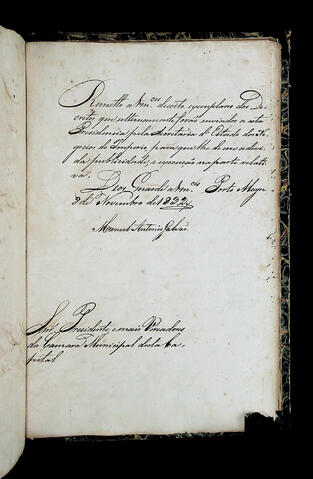 Remetto a Vm.ces dezoito exemplares dos De-
cretos, que ultimamente forão enviados a esta
Presidencia pela Secretaria d'Estado dos Ne-
gocios do Imperio, para que lhe de a devi-
da publicidade, e execução na parte relati-
va.
Deos Guarde a Vm.ces Porto Alegre
8 de Novembro de 1832
Manoel Antonio Galvão
Snr.es Presidente, e mais Vereadores
da Camara Municipal desta Ca-
pital